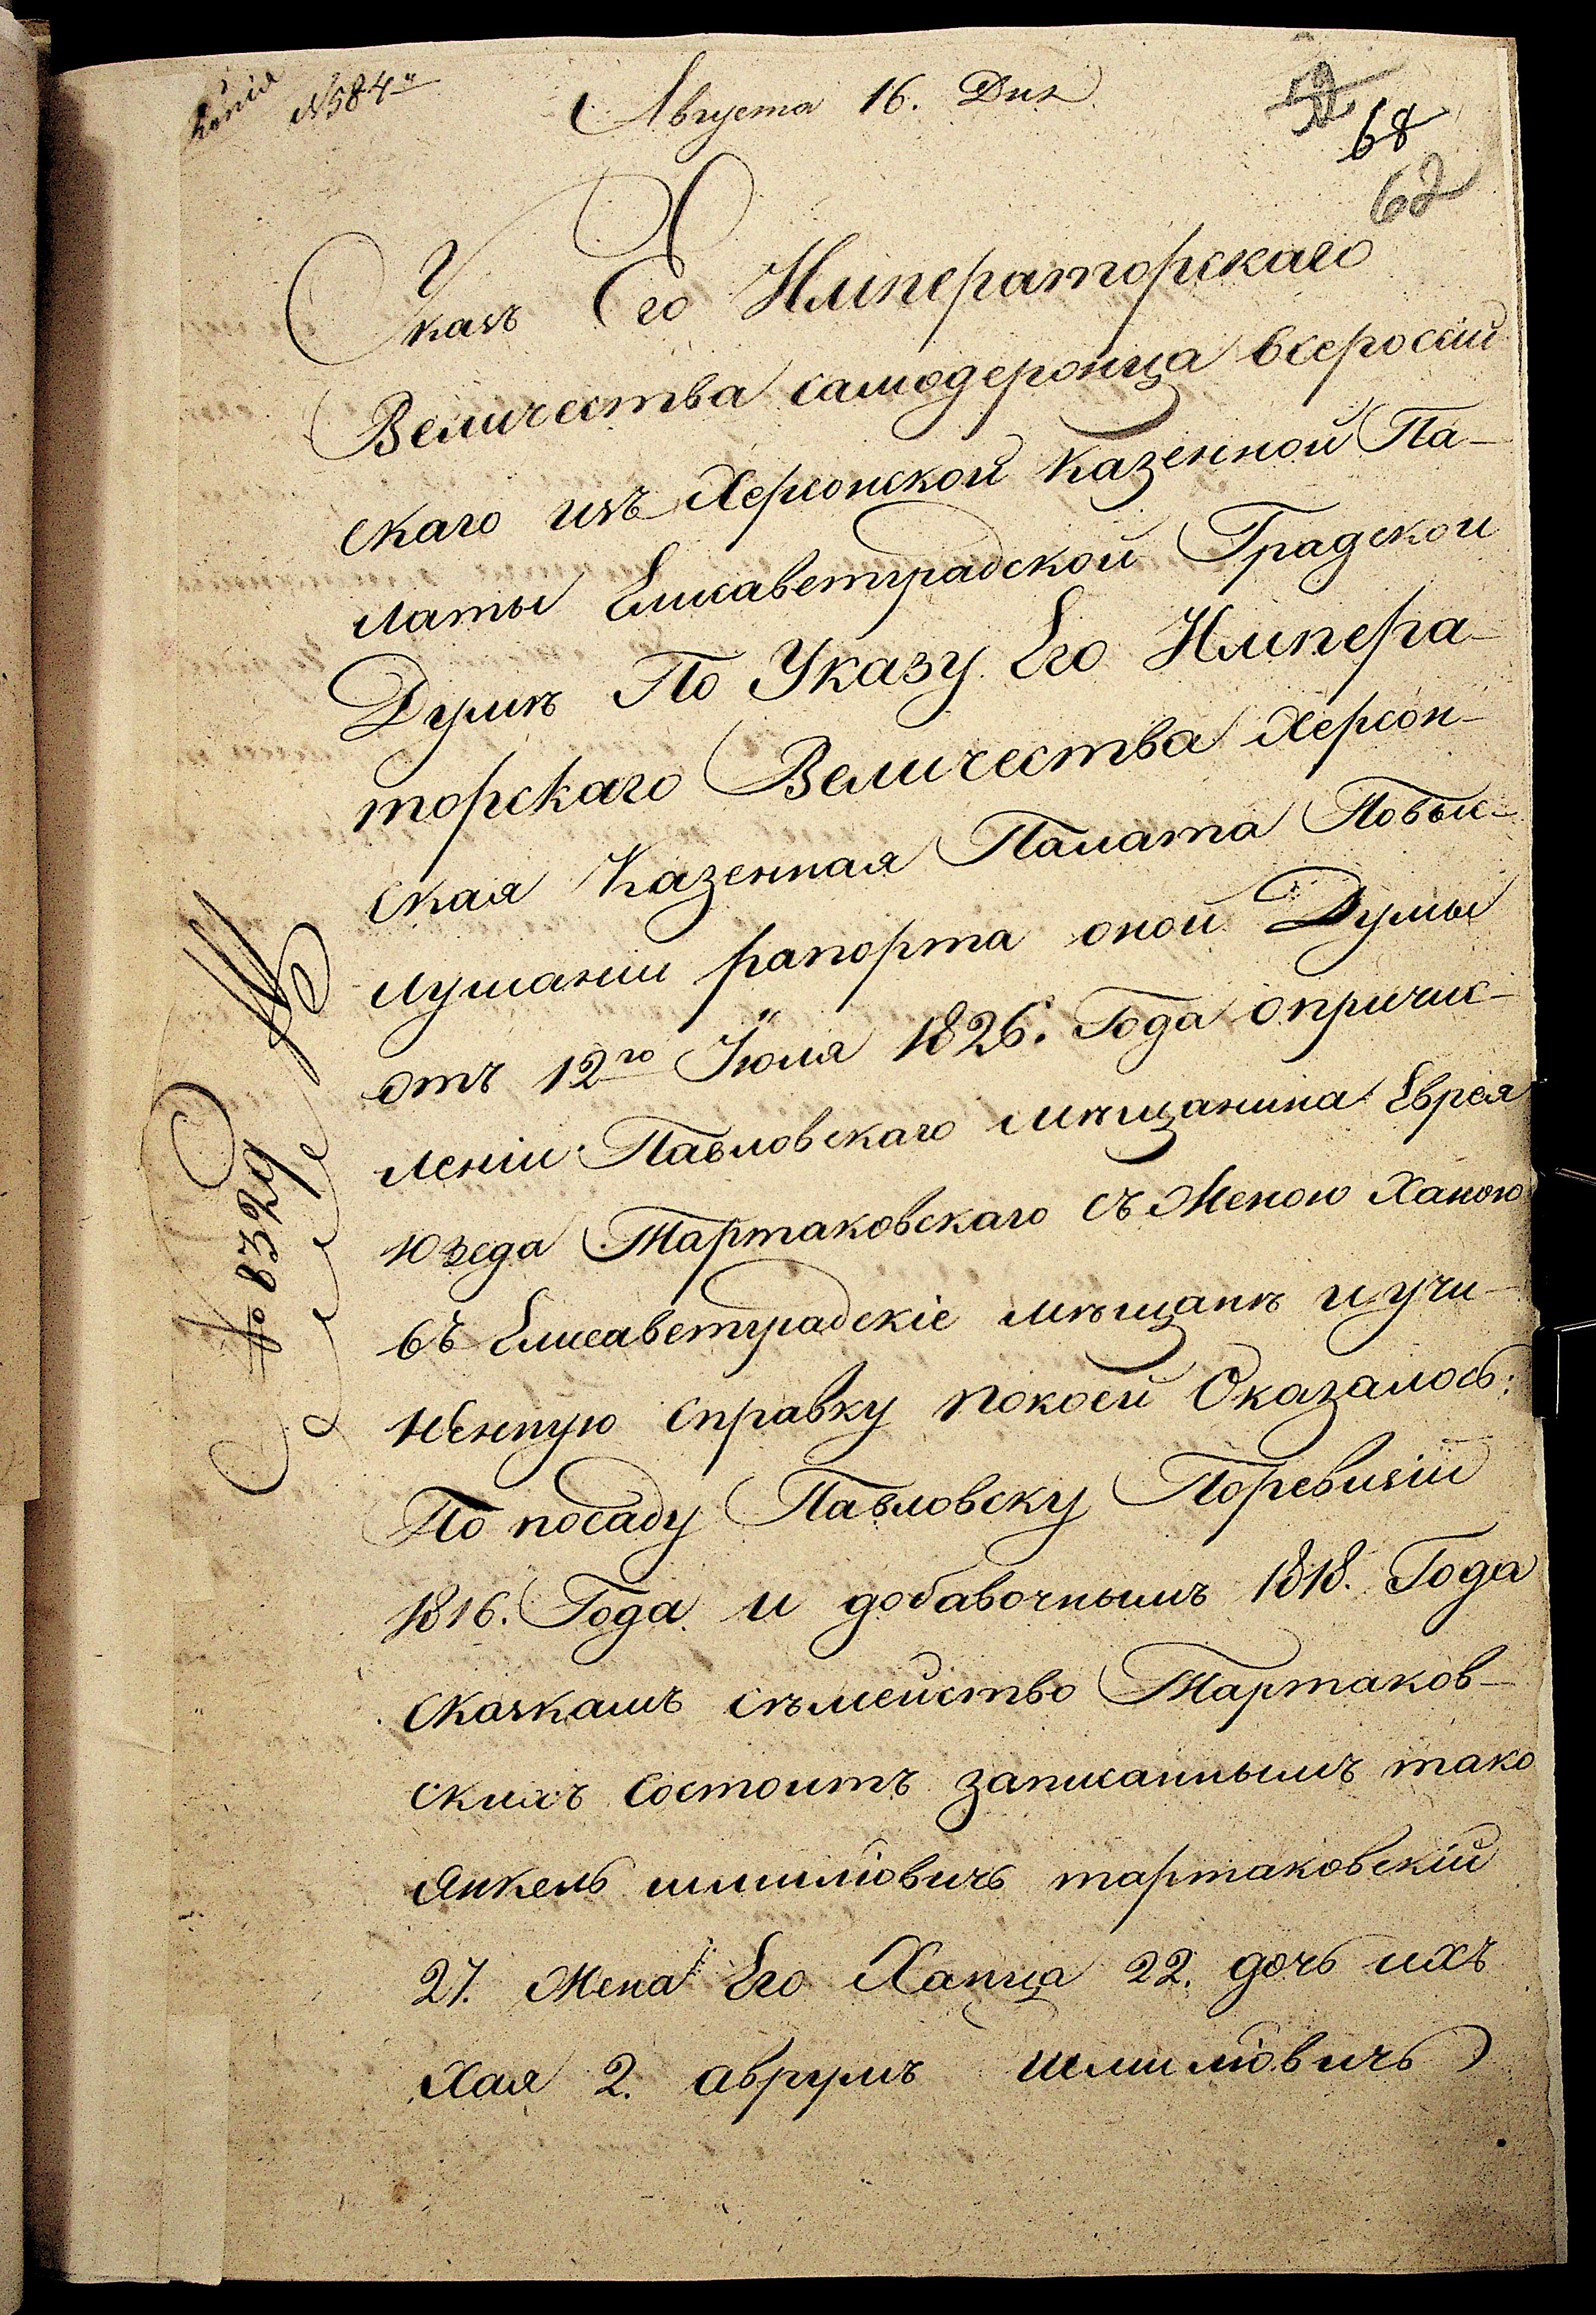 Копія
№ 584й
Августа 16. Дня
68
62
Указъ Его Императорскаго
Величества самодержца всеросій
скаго изъ Херсонской Казенной Па-
латы Елисаветградской Градской
Думѣ По Указу Его Импера-
торскаго Величества Херсон-
ская Казенная Палата Повыс-
лушаніи рапорта оной Думы
отъ 12го Іюля 1826. Года опричис-
леніи Павловскаго мѣщанина Еврея
Юзеда Тартаковскаго съ Женою Ханою
въ Елисаветградскіе мѣщанѣ и учи-
ненную справку покоей Оказалось:
По посаду Павловску Поревизіи
1816. Года и добавочнымъ 1818. Года
сказкамъ сѣмейство Тартаков-
скихъ состоитъ записаннымъ тако
Янкель шлиміовичь тартаковскій
27. Жена Его Ханца 22. дочь ихъ
Хая 2. аврумъ шлиміовичь
№ 8329